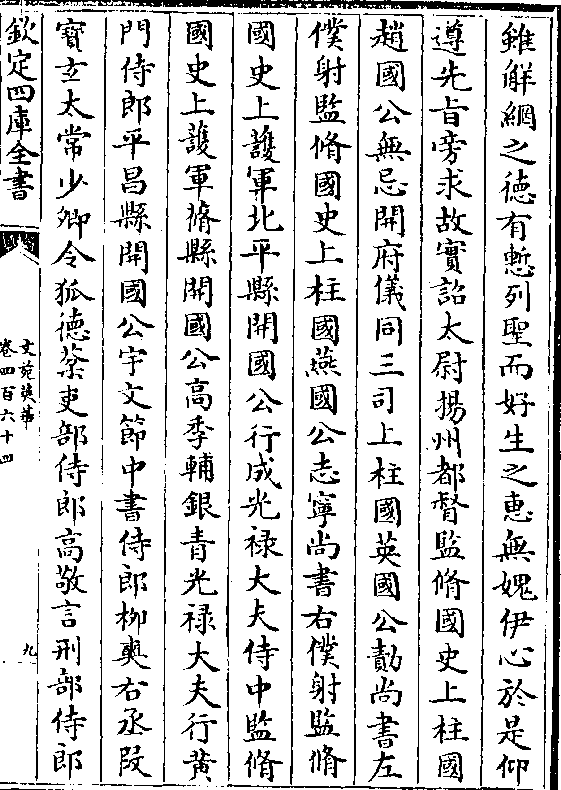 雖解網之徳有慙列聖而好生之惠無媿伊心於是仰
遵先旨旁求故實詔太尉揚州都督監脩國史上柱國
趙國公無忌開府儀同三司上柱國英國公勣尚書左
僕射監脩國史上柱國燕國公志寧尚書右僕射監脩
國史上護軍北平縣開國公行成光禄大夫侍中監脩
國史上護軍蓨縣開國公高季輔銀青光禄大夫行黄
門侍郎平昌縣開國公宇文節中書侍郎柳奭右丞段
寳玄太常少卿令狐德棻吏部侍郎高敬言刑部侍郎
欽定四庫全書
文苑英華
卷四百六十四
九